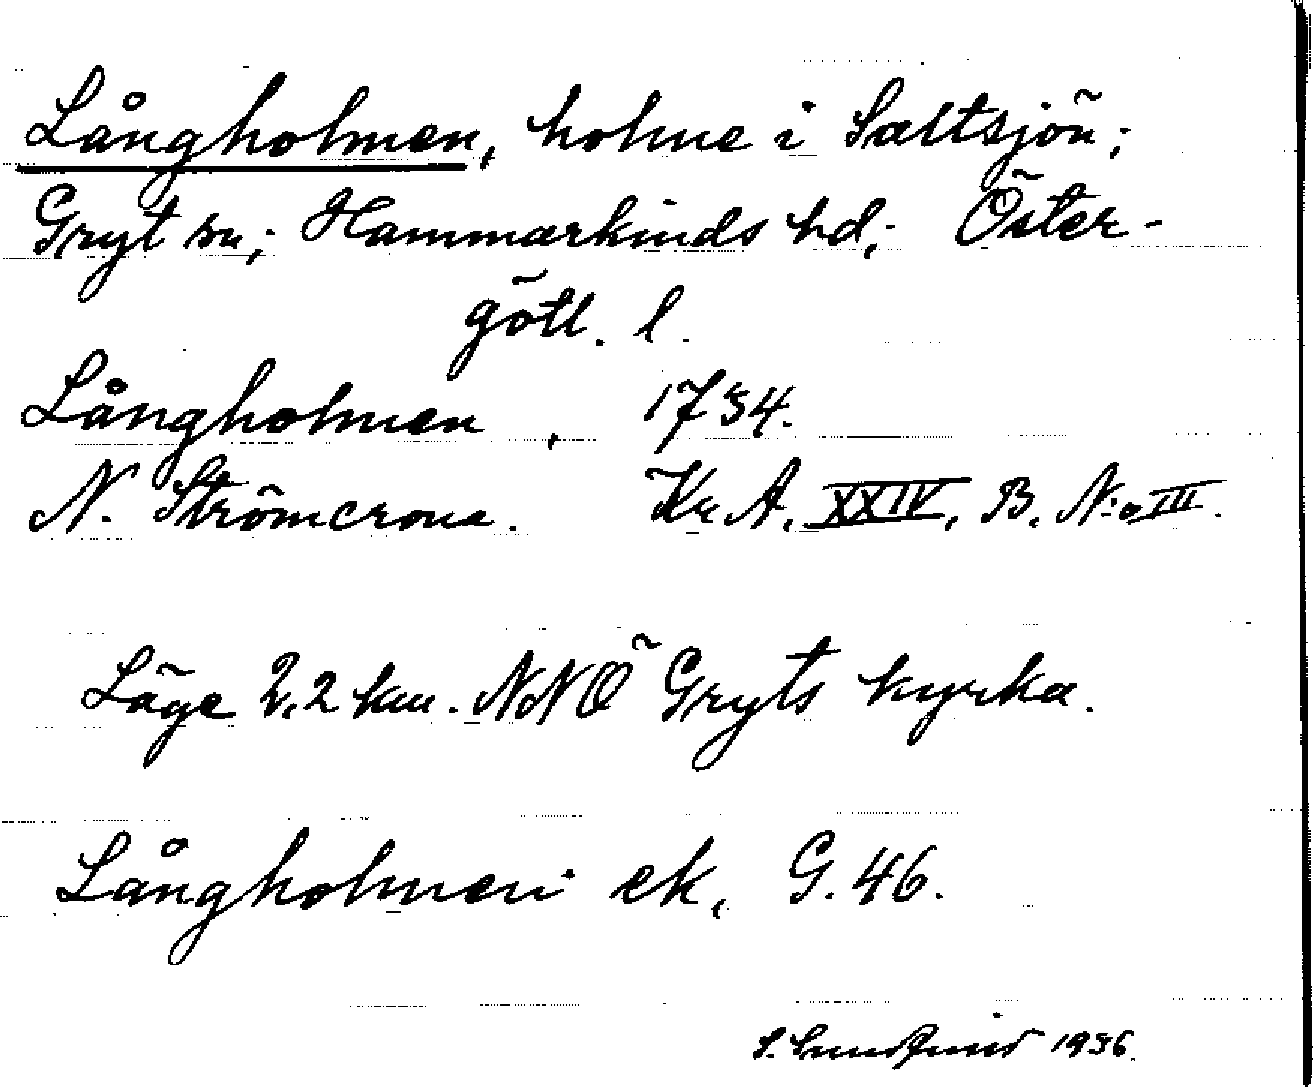 Långholmen, holme i Saltsjön;
Gryt sn; Hammarkinds hd; Öster-
götl. l.
Långholmen, 1734.
N. Strömcrona. Kr A. XXIV, B. N:o III.
Läge 2,2 km. NNÖ Gryts kyrka.
Långholmen ek, G. 46.
S. 1936.